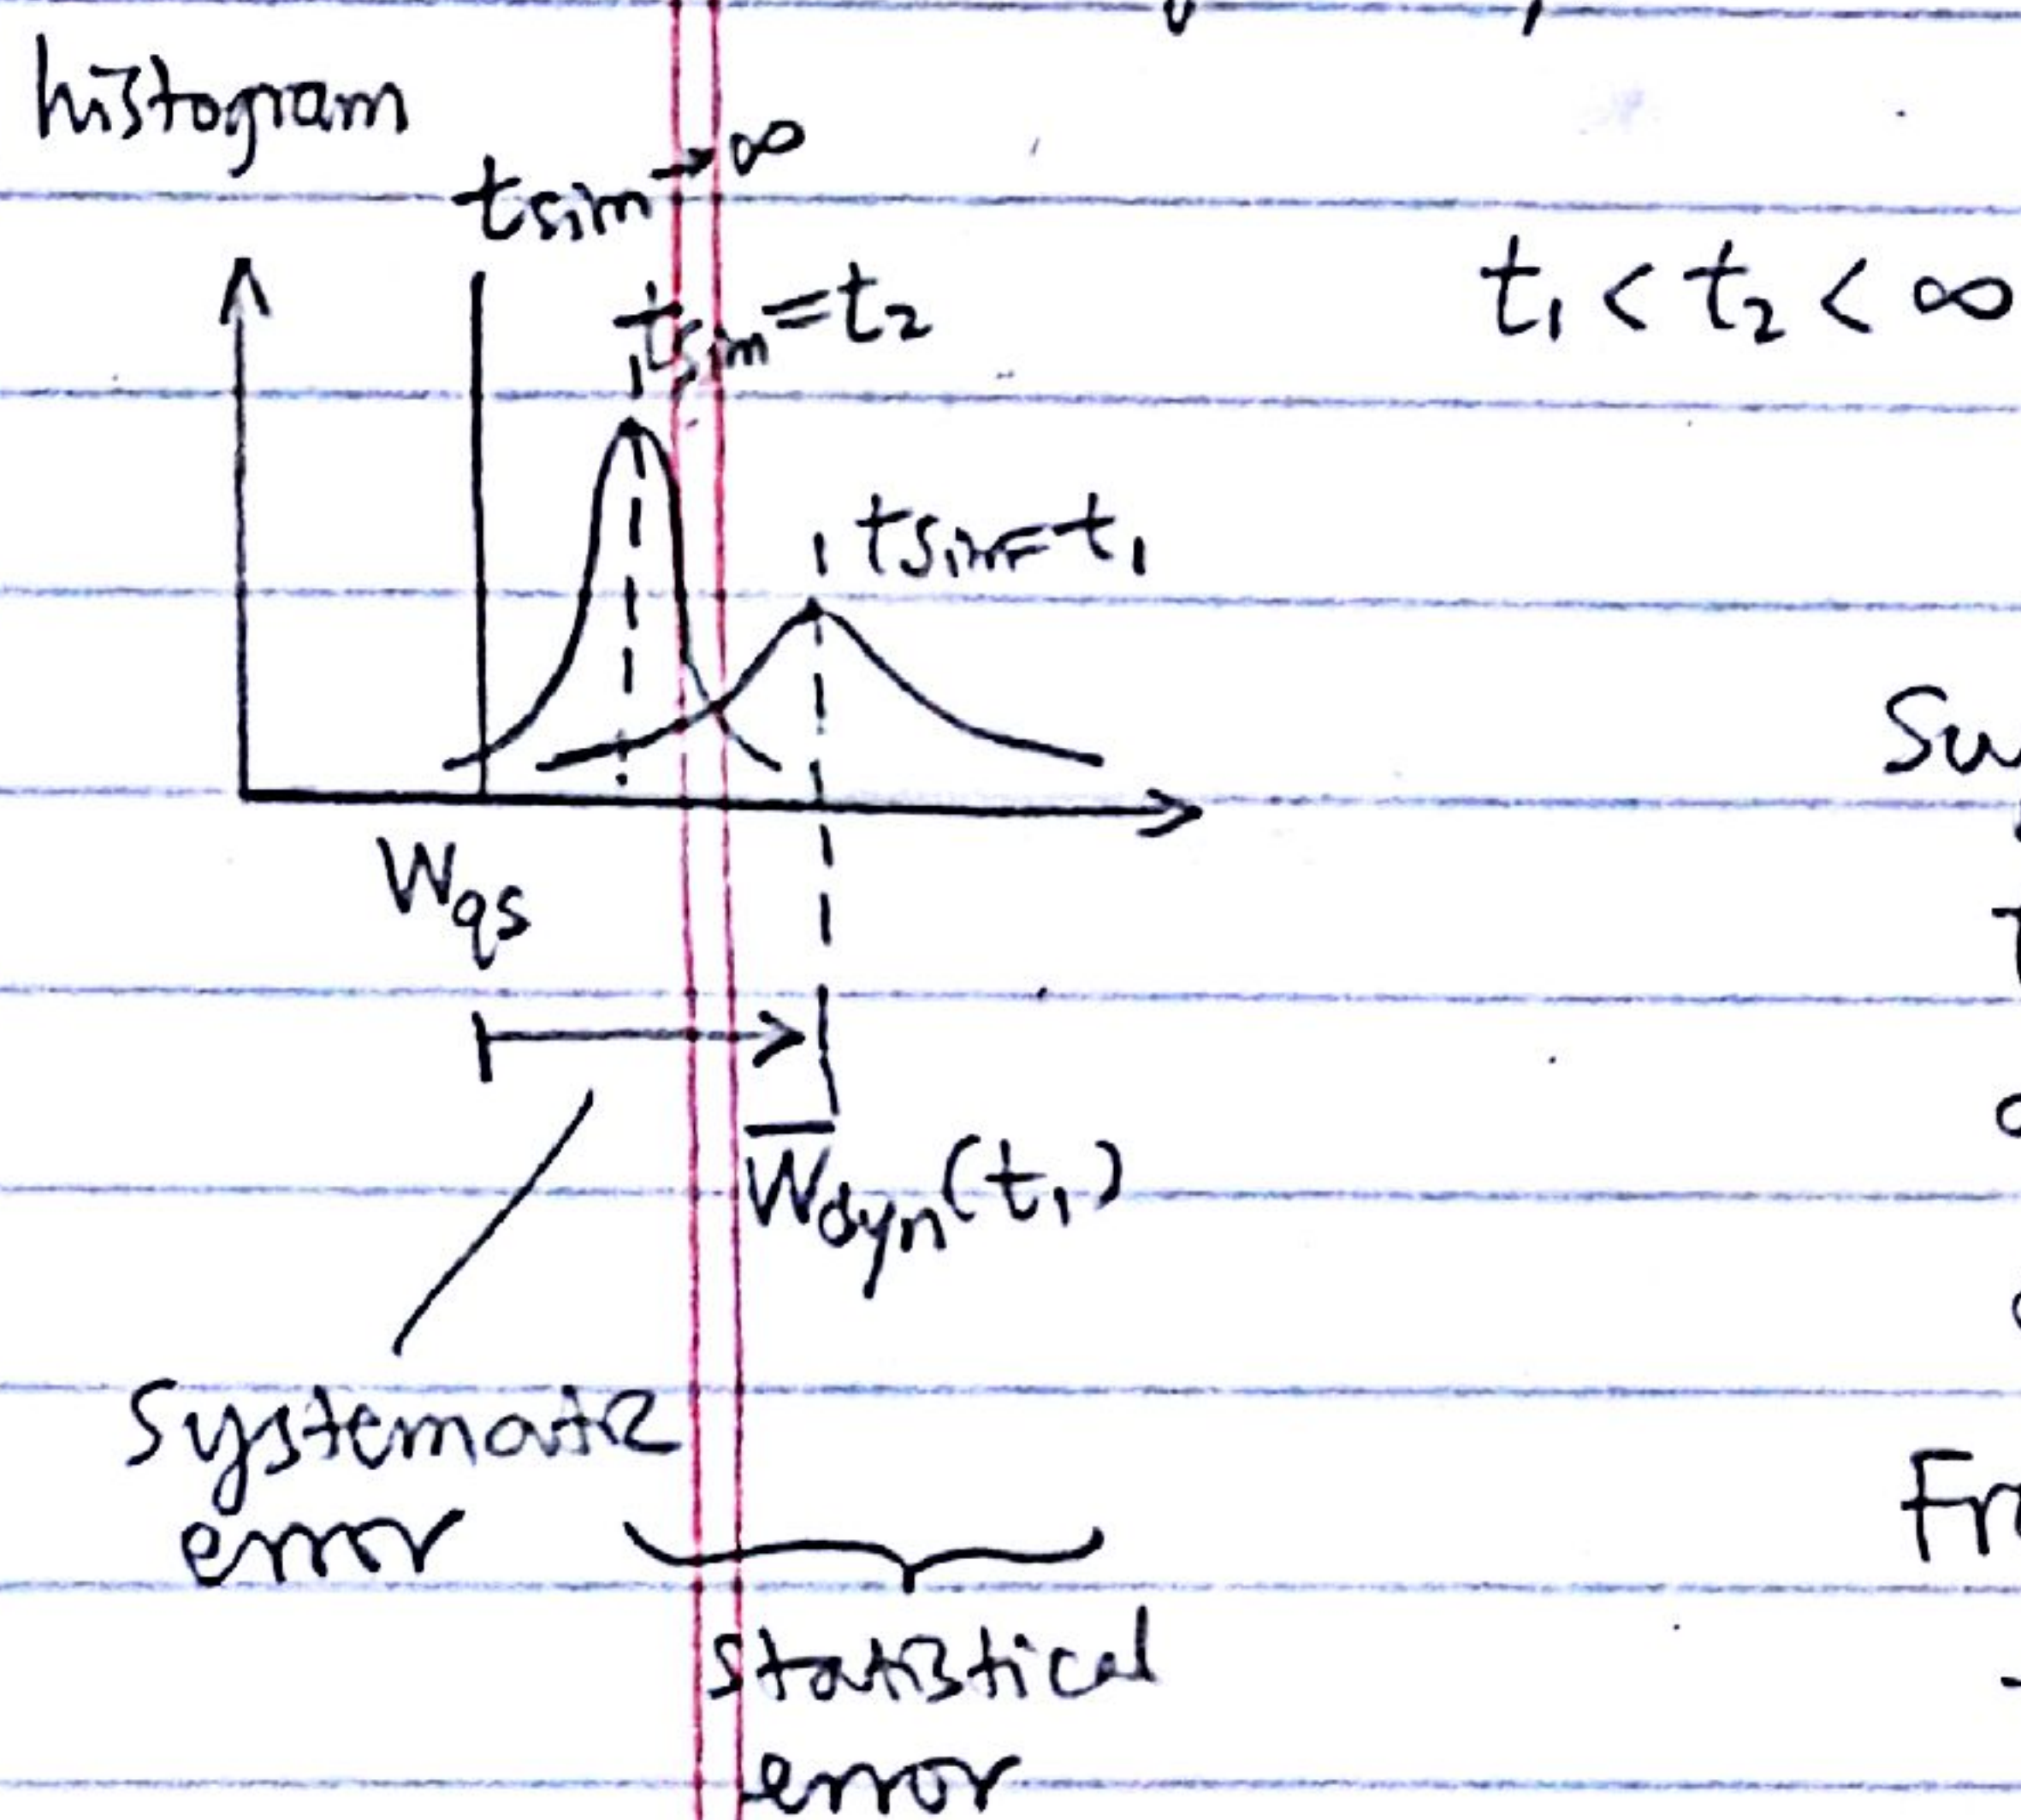 histogram
t_sim → ∞
t_sim = t₂
t₁ < t₂ < ∞
t_sim = t₁
W_qs
W̅_dyn(t₁)
Systematic
error
statistical
error